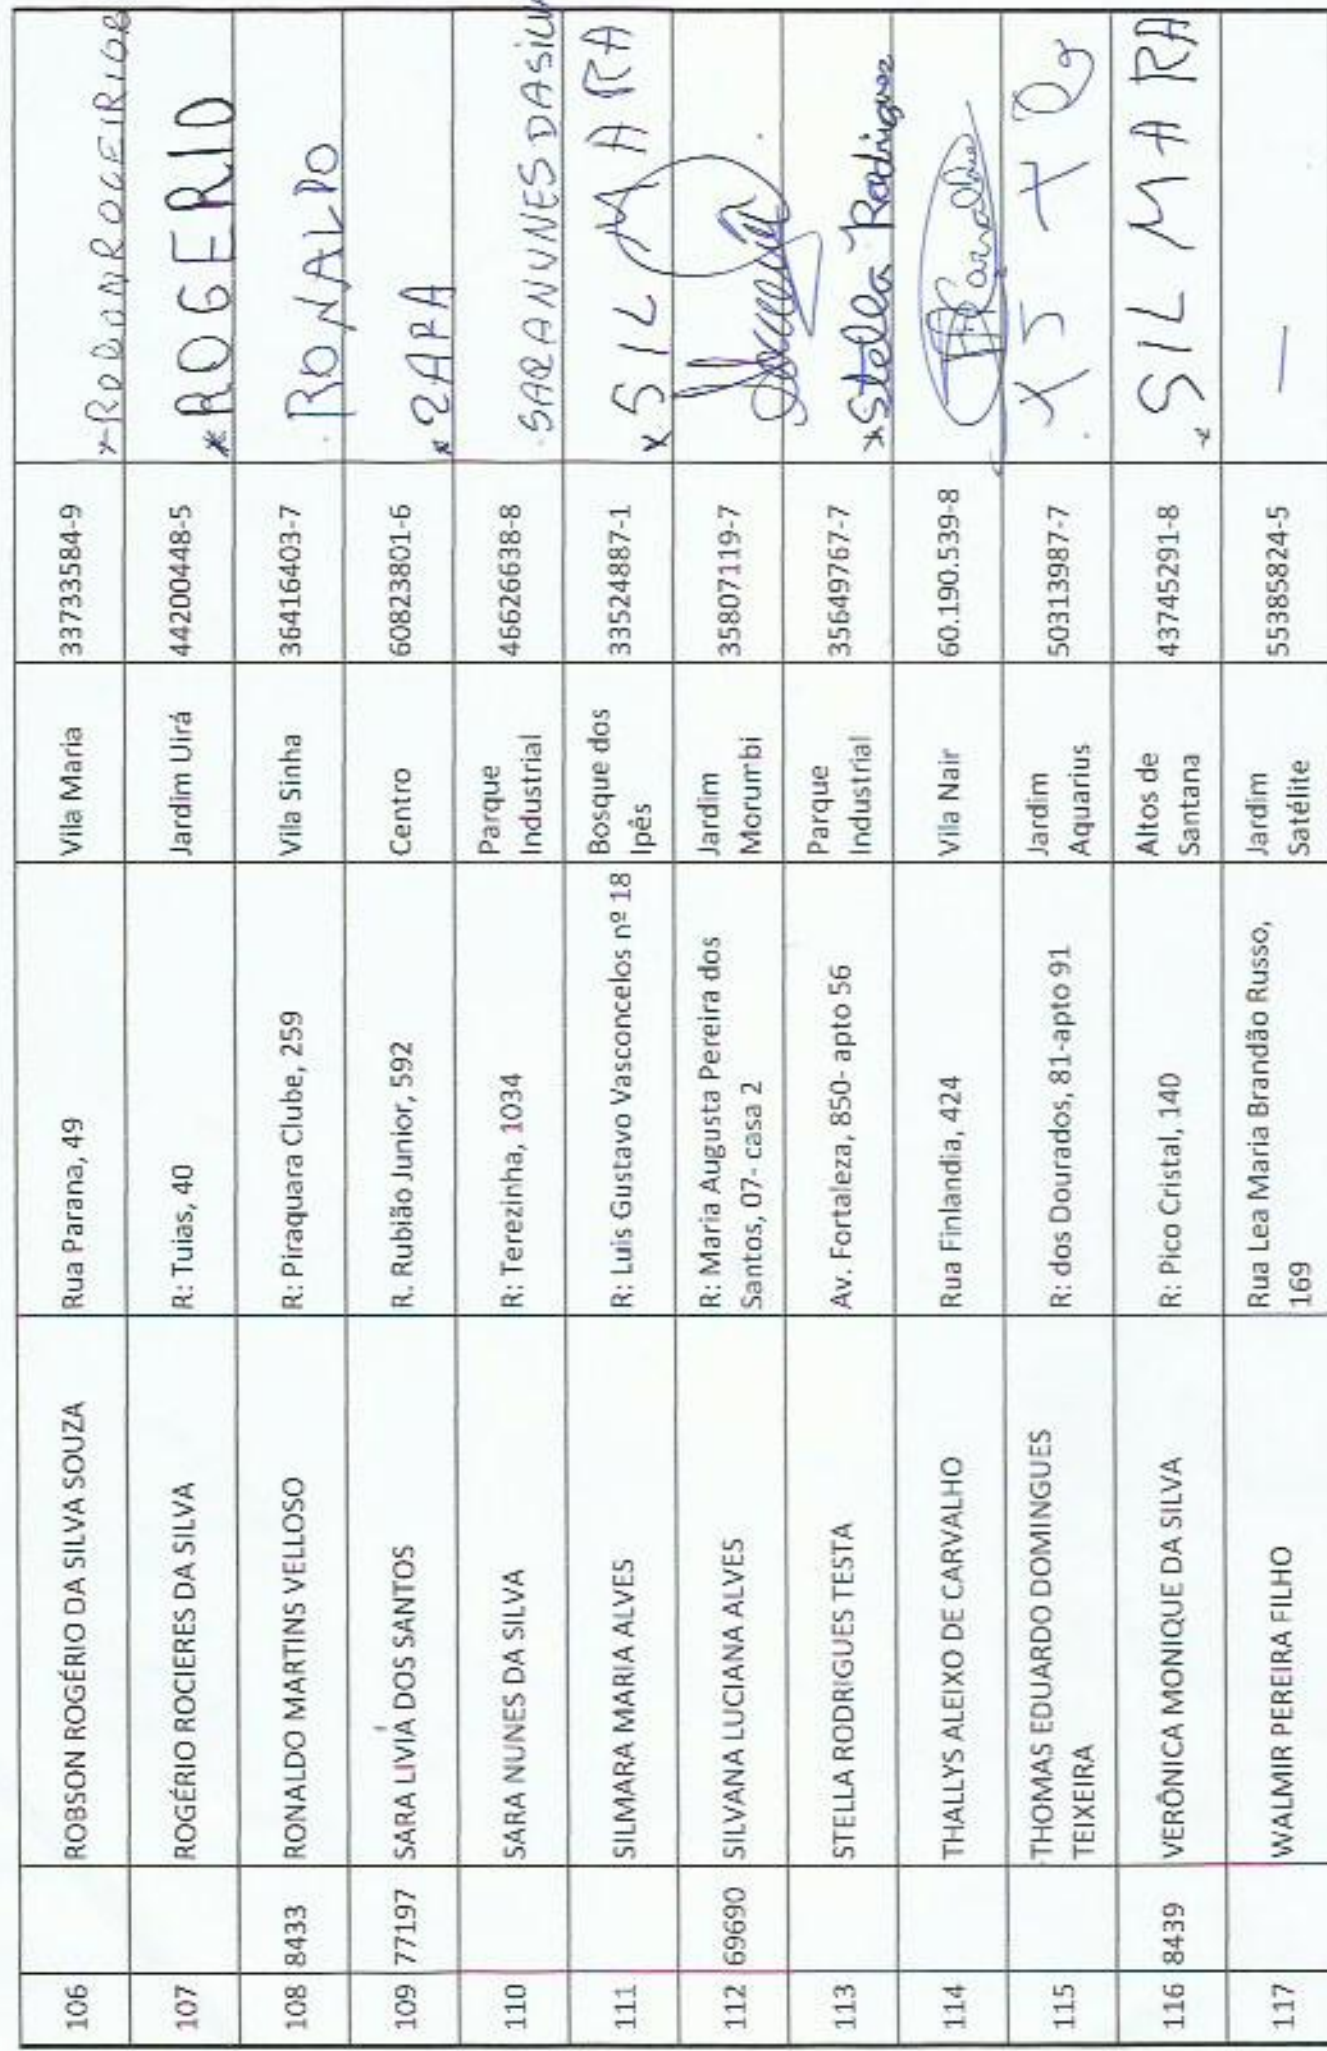 106 ROBSON ROGÉRIO DA SILVA SOUZA Rua Parana, 49 Vila Maria 33733584-9
107 ROGÉRIO ROCIERES DA SILVA R: Tuias, 40 Jardim Uirá 44200448-5 * ROGERIO
108 8433 RONALDO MARTINS VELLOSO R: Piraquara Clube, 259 Vila Sinha 36416403-7 RONALDO
109 77197 SARA LIVIA DOS SANTOS R. Rubião Junior, 592 Centro 60823801-6
110 SARA NUNES DA SILVA R: Terezinha, 1034 Parque
Industrial 46626638-8 SARANUNES DASILVA
111 SILMARA MARIA ALVES R: Luis Gustavo Vasconcelos nº 18 Bosque dos
Ipês 33524887-1 x SILMARA
112 69690 SILVANA LUCIANA ALVES R: Maria Augusta Pereira dos
Santos, 07- casa 2 Jardim
Morumbi 35807119-7
113 STELLA RODRIGUES TESTA Av. Fortaleza, 850- apto 56 Parque
Industrial 35649767-7 x Stella Rodrigues
114 THALLYS ALEIXO DE CARVALHO Rua Finlandia, 424 Vila Nair 60.190.539-8
115 THOMAS EDUARDO DOMINGUES
TEIXEIRA R: dos Dourados, 81-apto 91 Jardim
Aquarius 50313987-7
116 8439 VERÔNICA MONIQUE DA SILVA R: Pico Cristal, 140 Altos de
Santana 43745291-8 x SILMARA
117 WALMIR PEREIRA FILHO Rua Lea Maria Brandão Russo,
169 Jardim
Satélite 55385824-5 —